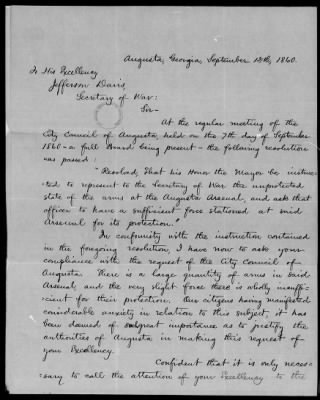 Augusta, Georgia, September 14th, 1860.
To His Excellency
Jefferson Davis,
Secretary of War:
Sir-
At the regular meeting of the
City Council of Augusta, held on the 7th day of September
1860 - a full Board being present - the following resolution
was passed:
"Resolved, That his Honor the Mayor be instruc-
ted to represent to the Secretary of War the unprotected
state of the arms at the Augusta Arsenal, and ask that
officer to have a sufficient force stationed at said
Arsenal for its protection."
In conformity with the instruction contained
in the foregoing resolution, I have now to ask your
compliance with the request of the City Council of
Augusta. There is a large quantity of arms in said
Arsenal, and the very slight force there is wholly insuffi-
cient for their protection. Our citizens having manifested
considerable anxiety in relation to this subject, it has
been deemed of such great importance as to justify the
authorities of Augusta in making this request of
your Excellency.
Confident that it is only neces-
sary to call the attention of your Excellency to the